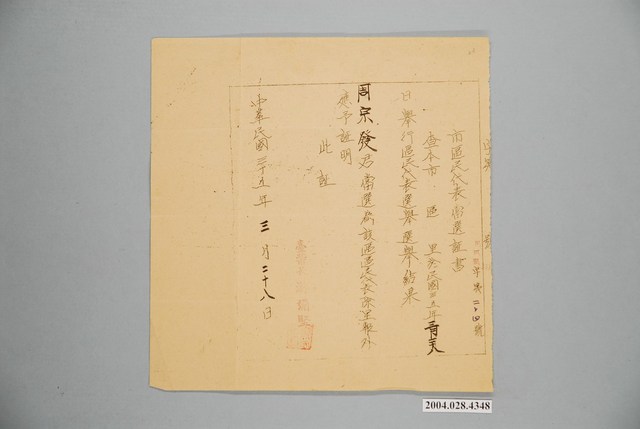 市區民代表當選証書
字第二〇四號
查本市 區 里於民國卅五年
日舉行區民代表選舉選舉結果
周宗發君當選為該區區民代表除呈報外
應予証明
此証
中華民國三十五年 三 月 二十八日
2004.028.4348